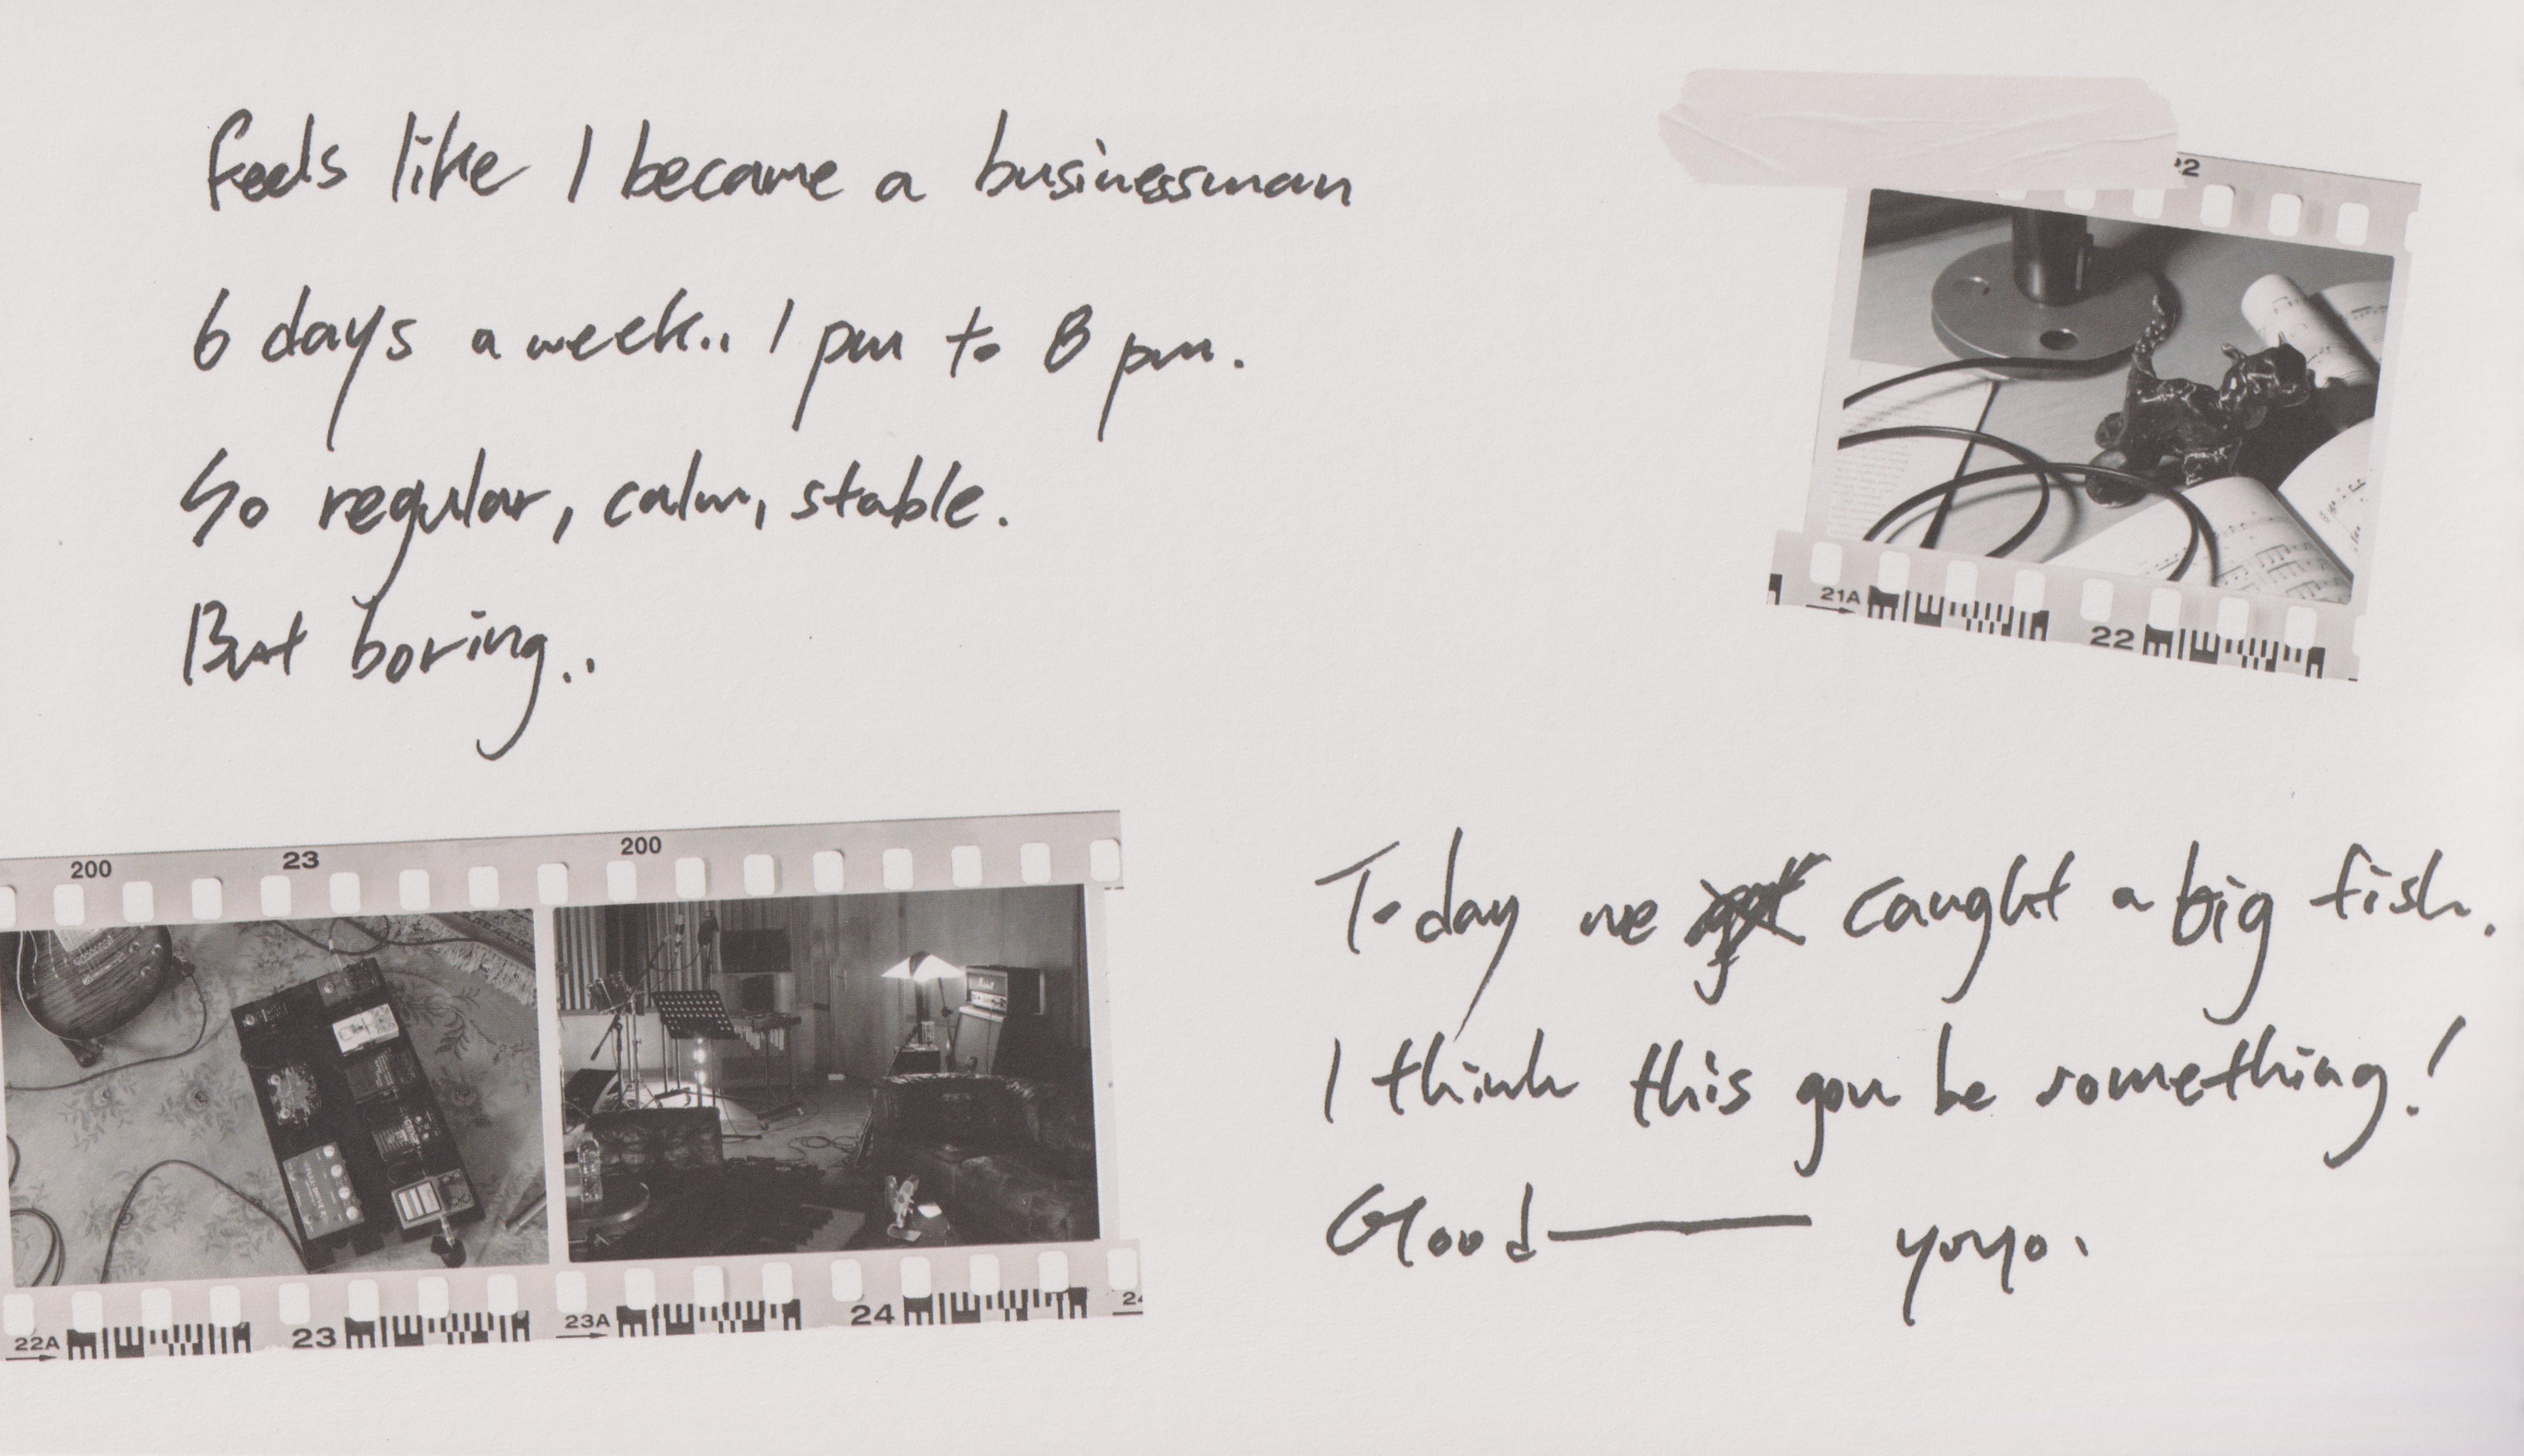 Feels like I became a businessman
6 days a week.. 1 pm to 8 pm.
So regular, calm, stable.
But boring..
22
21A
22
200 23 200
22A 23 23A 24 24
Today we got caught a big fish.
I think this gon be something!
Good—— yoyo.